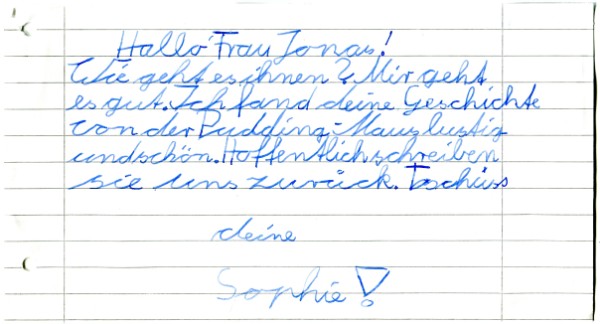 Hallo Frau Jonas!
Wie geht es ihnen? Mir geht
es gut. Ich fand deine Geschichte
von der Pudding-Maus lustig
und schön. Hoffentlich schreiben
sie uns zurück. Tschüss
deine
Sophie!